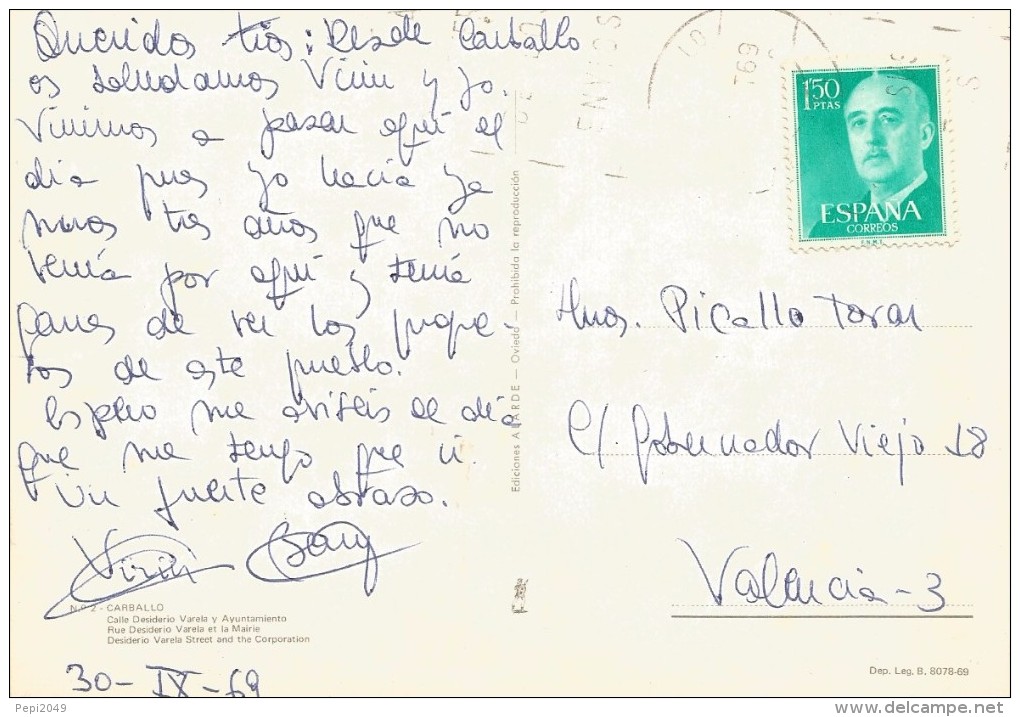 Queridos tíos: Desde Carballo
os saludamos Viviu y yo.
Vinimos a pasar aquí el
día pues yo hacía ya
unos tres años que no
venía por aquí y tenía
ganas de ver los progre-
sos de este pueblo.
Espero me aviséis el día
que me tengo que ir.
Un fuerte abrazo.
Nº 2 - CARBALLO
Calle Desiderio Varela y Ayuntamiento
Rue Desiderio Varela et la Mairie
Desiderio Varela Street and the Corporation
30-IX-69
Pepi2049
Prohibida la reproducción
Oviedo
69
1'50
PTAS
ESPAÑA
CORREOS
F.N.M.T.
Hnos. Picallo Toran
C/. Gobernador Viejo 18
Valencia-3
Dep. Leg. B. 8078-69